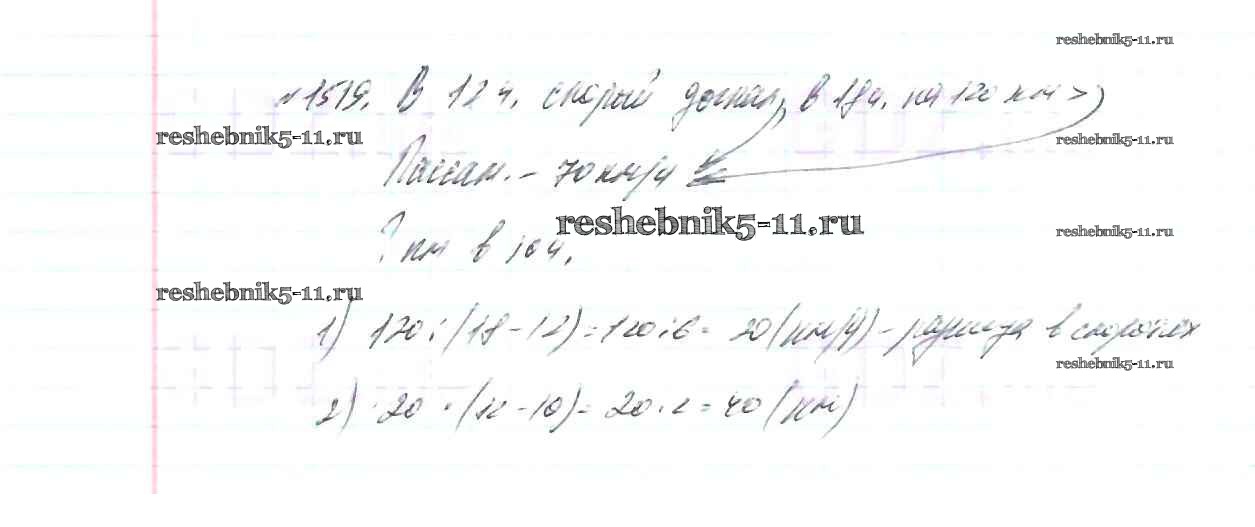 reshebnik5-11.ru
№1519. В 12 ч. скорый догнал, в 18ч. на 120 км >
reshebnik5-11.ru
reshebnik5-11.ru
Пассаж. - 70 км/ч
reshebnik5-11.ru
reshebnik5-11.ru
? км в 10 ч.
reshebnik5-11.ru
1) 120 : (18 - 12) = 120 : 6 = 20 (км/ч) - разница в скоростях
reshebnik5-11.ru
2) 20 · (12 - 10) = 20 · 2 = 40 (км)